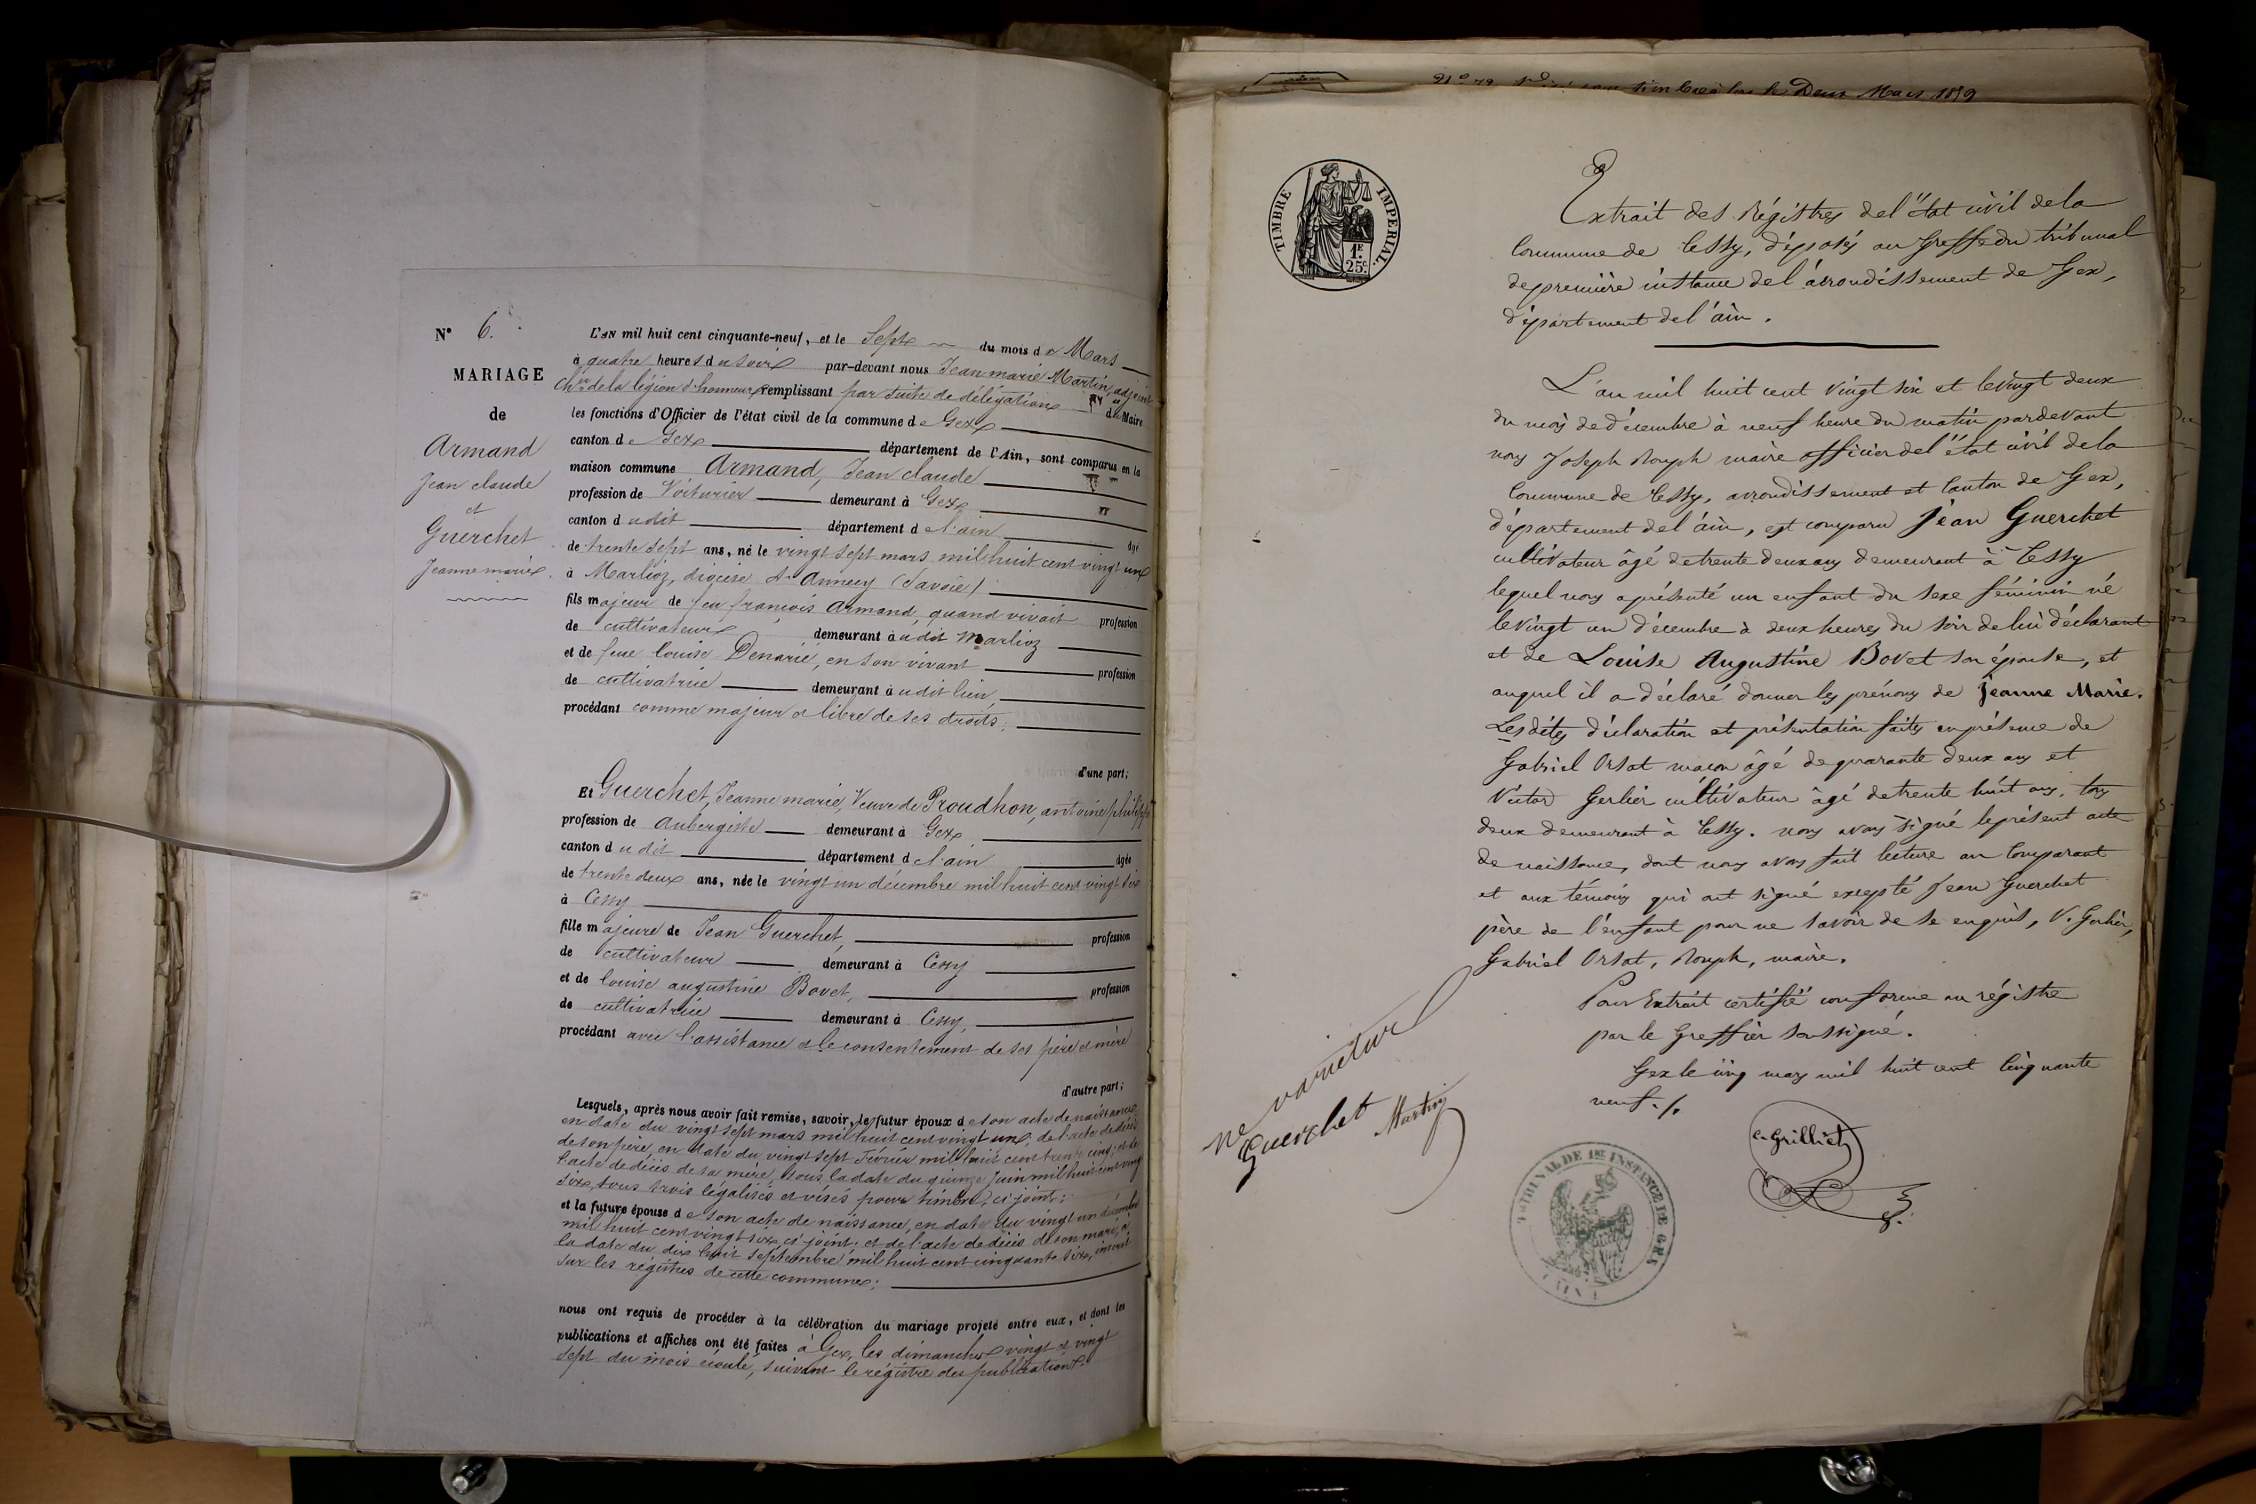 N° 6.
MARIAGE
de
Armand
Jean claude
et
Guerchet
Jeanne marie.
L'an mil huit cent cinquante-neuf, et le Sept du mois de Mars
à quatre heures du soir par-devant nous Jean marie Martin, adjoint
Chr. de la légion d'honneur remplissant par suite de délégation du Maire
les fonctions d'Officier de l'état civil de la commune de Gex
canton de Gex département de l'Ain, sont comparus en la
maison commune Armand, Jean claude
profession de Voiturier demeurant à Gex
canton dudit département de l'ain âgé
de trente sept ans, né le vingt sept mars mil huit cent vingt un
à Marlioz, diocèse d'Annecy (Savoie)
fils majeur de feu françois Armand, quand vivait profession
de cultivateur demeurant à udit Marlioz
et de feue louise Denarié, en son vivant profession
de cultivatrice demeurant à udit lieu,
procédant comme majeur et libre de ses droits.
d'une part;
Et Guerchet, Jeanne marie, Veuve de Proudhon, antoine philippe
profession de aubergiste demeurant à Gex
canton dudit département de l'ain âgée
de trente deux ans, née le vingt un décembre mil huit cent vingt six
à Cessy
fille majeure de Jean Guerchet, profession
de cultivateur demeurant à Cessy
et de louise augustine Bovet, profession
de cultivatrice demeurant à Cessy,
procédant avec l'assistance et le consentement de ses père et mère
d'autre part;
Lesquels, après nous avoir fait remise, savoir, le futur époux de son acte de naissance
en date du vingt sept mars mil huit cent vingt un; de l'acte de décès
de son père, en date du vingt sept février mil huit cent trente cinq; et de
l'acte de décès de sa mère, sous la date du quinze Juin mil huit cent vingt
six, tous trois légalisés et visés pour timbre, ci joint;
et la future épouse de son acte de naissance, en date du vingt un décembre
mil huit cent vingt six, ci joint; et de l'acte de décès de son mari, à
la date du dix huit septembre mil huit cent cinquante six, inscrit
sur les registres de cette commune;
nous ont requis de procéder à la célébration du mariage projeté entre eux, et dont les
publications et affiches ont été faites à Gex, les dimanches vingt et vingt
sept du mois écoulé, suivant le régistre des publications.
Deux Mars 1859
TIMBRE IMPERIAL.
1F.
25c.
Extrait des Régistres de l'état civil de la
Commune de Cessy, déposés au Greffe du tribunal
de première instance de l'arrondissement de Gex,
département de l'ain.
L'an mil huit cent vingt six et le vingt deux
du mois de décembre à neuf heure du matin pardevant
nous Joseph Rouph maire officier de l'état civil de la
Commune de Cessy, arrondissement et Canton de Gex,
département de l'ain, est comparu Jean Guerchet
cultivateur âgé de trente deux ans demeurant à Cessy
lequel nous a présenté un enfant du sexe féminin né
le vingt un décembre à deux heures du soir de lui déclarant
et de Louise Augustine Bovet son épouse, et
auquel il a déclaré donner les prénoms de Jeanne Marie.
Lesdites déclaration et présentation faites en présence de
Gabriel Orsat maçon âgé de quarante deux ans et
Victor Gerlier cultivateur âgé de trente huit ans, tous
deux demeurant à Cessy. nous avons signé le présent acte
de naissance, dont nous avons fait lecture au Comparant
et aux témoins qui ont signé excepté Jean Guerchet
père de l'enfant pour ne savoir de ce enquis, V. Gerlier,
Gabriel Orsat, Rouph, maire.
Pour Extrait certifié conforme au régistre
par le Greffier soussigné.
Gex le cinq mars mil huit cent cinquante
neuf./.
ne varietur
Guerchet Martin
Grilliet
TRIBUNAL DE 1ere INSTANCE DE GEX
(AIN)